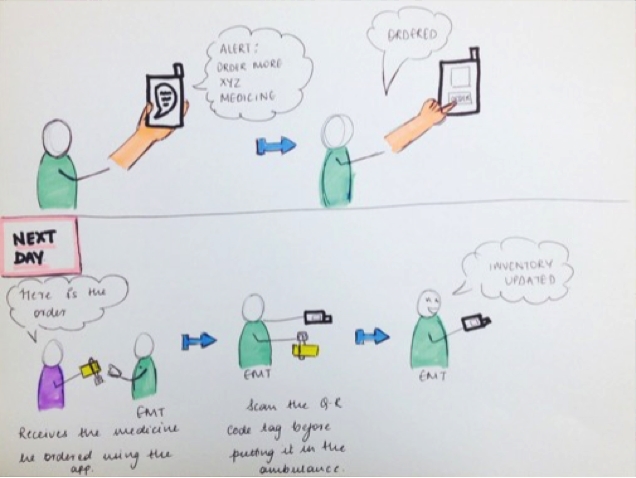 ALERT:
ORDER MORE
XYZ
MEDICINE
ORDERED
ORDER
NEXT
DAY
Here is the
order
EMT
Receives the medicine
he ordered using the
app.
EMT
Scan the Q-R
Code tag before
putting it in the
ambulance.
INVENTORY
UPDATED
EMT